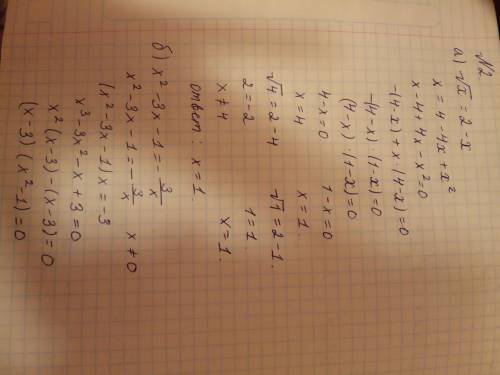 №2
а) √x = 2 - x
x = 4 - 4x + x²
x - 4 + 4x - x² = 0
-(4-x) + x·(4-x) = 0
-(4-x)·(1-x) = 0
(4-x)·(1-x) = 0
4-x=0 1-x=0
x=4 x=1.
√4 = 2-4 √1 = 2-1.
2=-2 1=1.
x≠4 x=1.
ответ: x=1.
б) x²-3x-1=-3/x
x²-3x-1=-3/x x≠0
(x²-3x-1)x=-3
x³-3x²-x+3=0
x²(x-3)-(x-3)=0
(x-3)(x²-1)=0